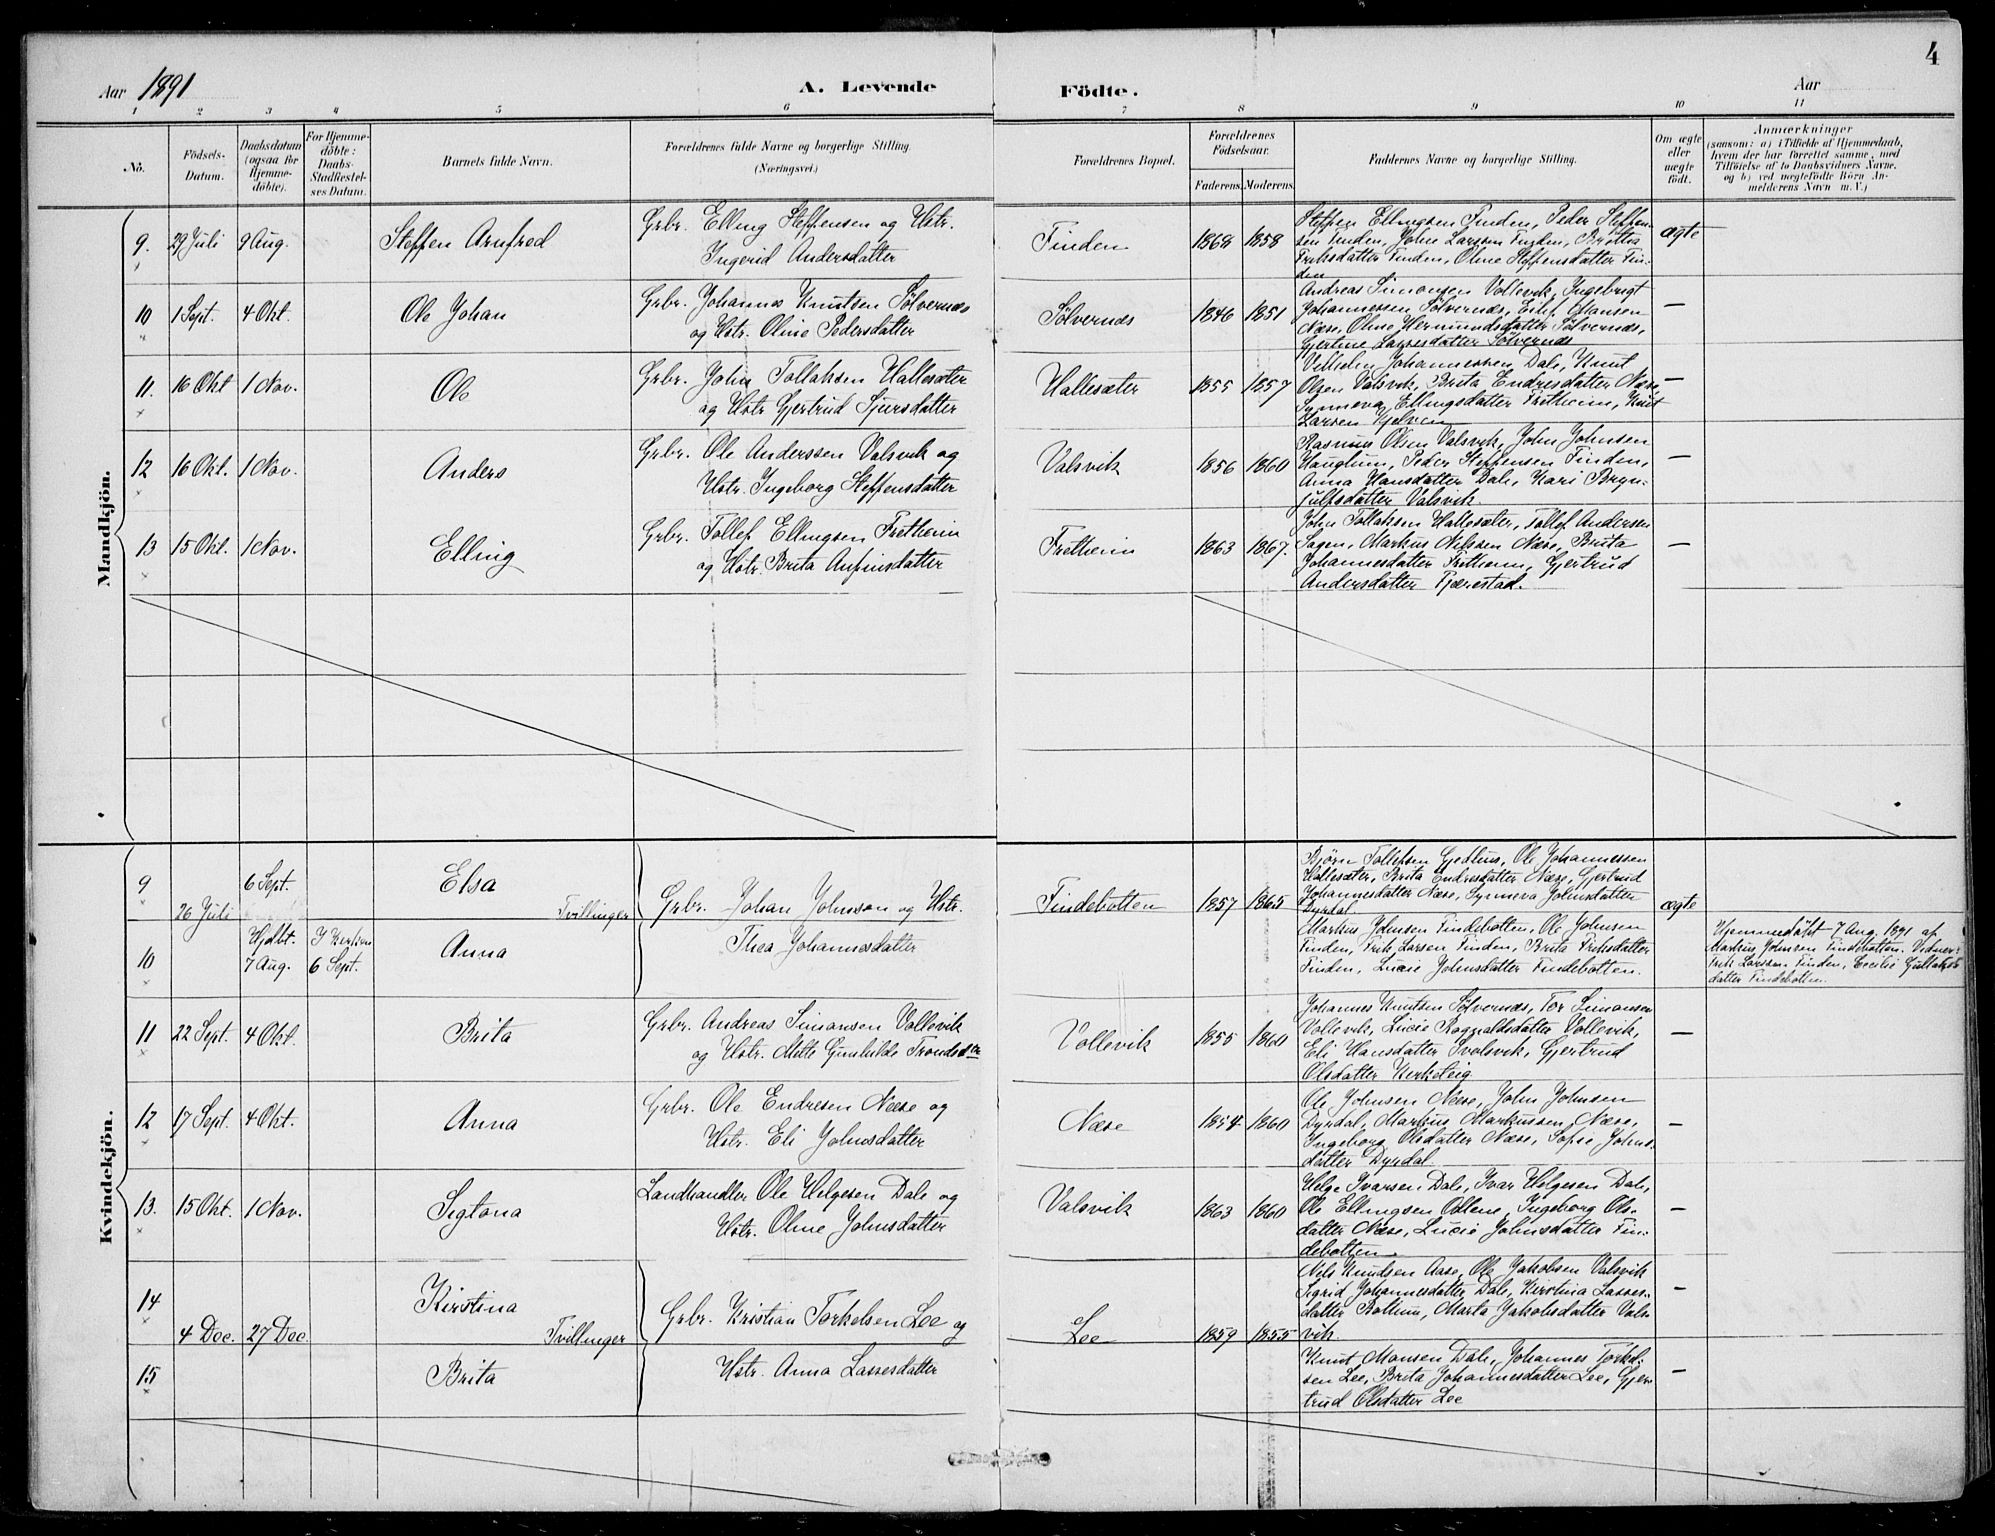 4
Aar 1891
A. Levende Födte.
Aar
1 2 3 4 5 6 7 8 9 10 11
No.
Födsels-Datum.
Daabsdatum (ogsaa for Hjemme-döbte).
For Hjemme-döbte: Daabs-Stadfæstel-ses Datum.
Barnets fulde Navn.
Forældrenes fulde Navne og borgerlige Stilling. (Næringsvei.)
Forældrenes Bopæl.
Forældrenes Födselsaar.
Faderens. Moderens.
Faddernes Navne og borgerlige Stilling.
Om ægte eller uægte födt.
Anmærkninger
(saasom: a) i Tilfælde af Hjemmedaab,
hvem der har forrettet samme, med
Tilföielse af to Daabsvidners Navne,
og b) ved uægtefödte Börn An-
melderens Navn m. V.)
Mandkjön.
9. 29 Juli 9 Aug. Steffen Arnfred
Grbr. Elling Steffensen og Hstr.
Ingerid Andersdatter
Finden 1868 1858
Steffen Ellingsen Finden, Peder Steffen-
sen Finden, John Larsen Finden, Britha
Friksdatter Finden, Oline Steffensdatter Fin-
den
ægte
10 1 Sept. 4 Okt. Ole Johan
Grbr. Johannes Knutsen Sølvernæs
og Hstr. Oline Pedersdatter
Sølvernæs 1846 1851
Andreas Simonsen Vollevik, Ingebrigt
Johannessen Sølvernæs, Eilif Hansen
Næse, Oline Hermundsdatter Sølvernæs,
Gjertine Lassesdatter Sølvernæs
—
11. 16 Okt 1 Nov. Ole
Grbr. John Tollaksen Hallesæter
og Hstr. Gjertrud Sjursdatter
Hallesæter 1855 1857
Villiken Johannessen Dale, Knut
Olsen Valsvik, Brita Endresdatter Næse,
Synneva Ellingsdatter Fretheim, Knut
Larsen
—
12 16 Okt. 1 Nov. Anders
Grbr. Ole Anderssen Valsvik og
Hstr. Ingeborg Steffensdatter
Valsvik 1856 1860
Rasmus Olsen Valsvik, John Johnsen
Hauglum, Peder Steffensen Finden,
Anna Hansdatter Dale, Kari Bryn-
julfsdatter Valsvik.
—
13 15 Okt. 1 Nov. Elling
Grbr. Tollef Ellingsen Fretheim
og Hstr. Brita Anfinsdatter
Fretheim 1863 1867.
John Tollaksen Hallesæter, Tollef Andersen
Sagen, Markus Nilssen Næse, Brita
Johannesdatter Fretheim, Gjertrud
Andersdatter Fjærestad.
—
Kvindekjön.
9 26 Juli 6 Sept. Elsa
Tvillinger
Grbr. Johan Johnson og Hstr.
Thea Johannesdatter
Findebotten 1857 1865
Bjørn Tollefsen Gjedhus, Ole Johannessen
Hallesæter, Brita Endresdatter Næse, Gjertrud
Johannesdatter Næse, Synneva Johnsdatter
Dyrdal
ægte
10 Hjdbt. 7 Aug. I Kirken 6 Sept. Anna
Markus Johnsen Findebotten, Ole Johnsen
Finden, Frik Larssen Finden, Brita Friksdatter
Finden, Lucie Johnsdatter Findebotten.
Hjemmedøbt 7 Aug. 1891 af
Markus Johnsen Findebotten. Vidner:
Frik Larssen Finden, Cecilie
datter Findebotten.
11 22 Sept. 4 Okt. Brita
Grbr. Andreas Simonsen Vollevik
og Hstr. Mette Gunhilde Trondsdtr
Vollevik 1855 1860
Johannes Knutsen Sølvernæs, Tor Simonsen
Vollevik, Lucie Ragnaldsdatter Vollevik,
Eli Hansdatter Svalsvik, Gjertrud
Olsdatter Kirketeig
—
12 17 Sept. 4 Okt. Anna
Grbr. Ole Endresen Næse og
Hstr. Eli Johnsdatter
Næse 1854 1860
Ole Johnsen Næse, John Johnsen
Dyrdal, Markus Markussen Næse,
Ingeborg Olsdatter Næse, Sofie Johns-
datter Dyrdal
—
13. 15 Okt. 1 Nov. Sigtona
Landhandler Ole Helgesen Dale og
Hstr. Oline Johnsdatter
Valsvik 1863 1860
Helge Ivarsen Dale, Ivar Helgesen Dale,
Ole Ellingsen Ottene, Ingeborg Ols-
datter Næse, Lucie Johnsdatter Fin-
debotten
—
14 4 Dec. 27 Dec. Kirstina
Tvillinger
Grbr. Kristian Torkelsen Lee og
Hstr. Anna Lassesdatter
Lee 1859 1855
Nils Knudsen Aase, Ole Jakobsen Valsvik
Sigrid Johannesdatter Dale, Kirstina Lasses-
datter Bottun, Marta Jakobsdatter Vals-
vik.
—
15 Brita
Knut Monsen Dale, Johannes Torkel-
sen Lee, Brita Johannesdatter Lee, Gjer-
trud Olsdatter Lee
—